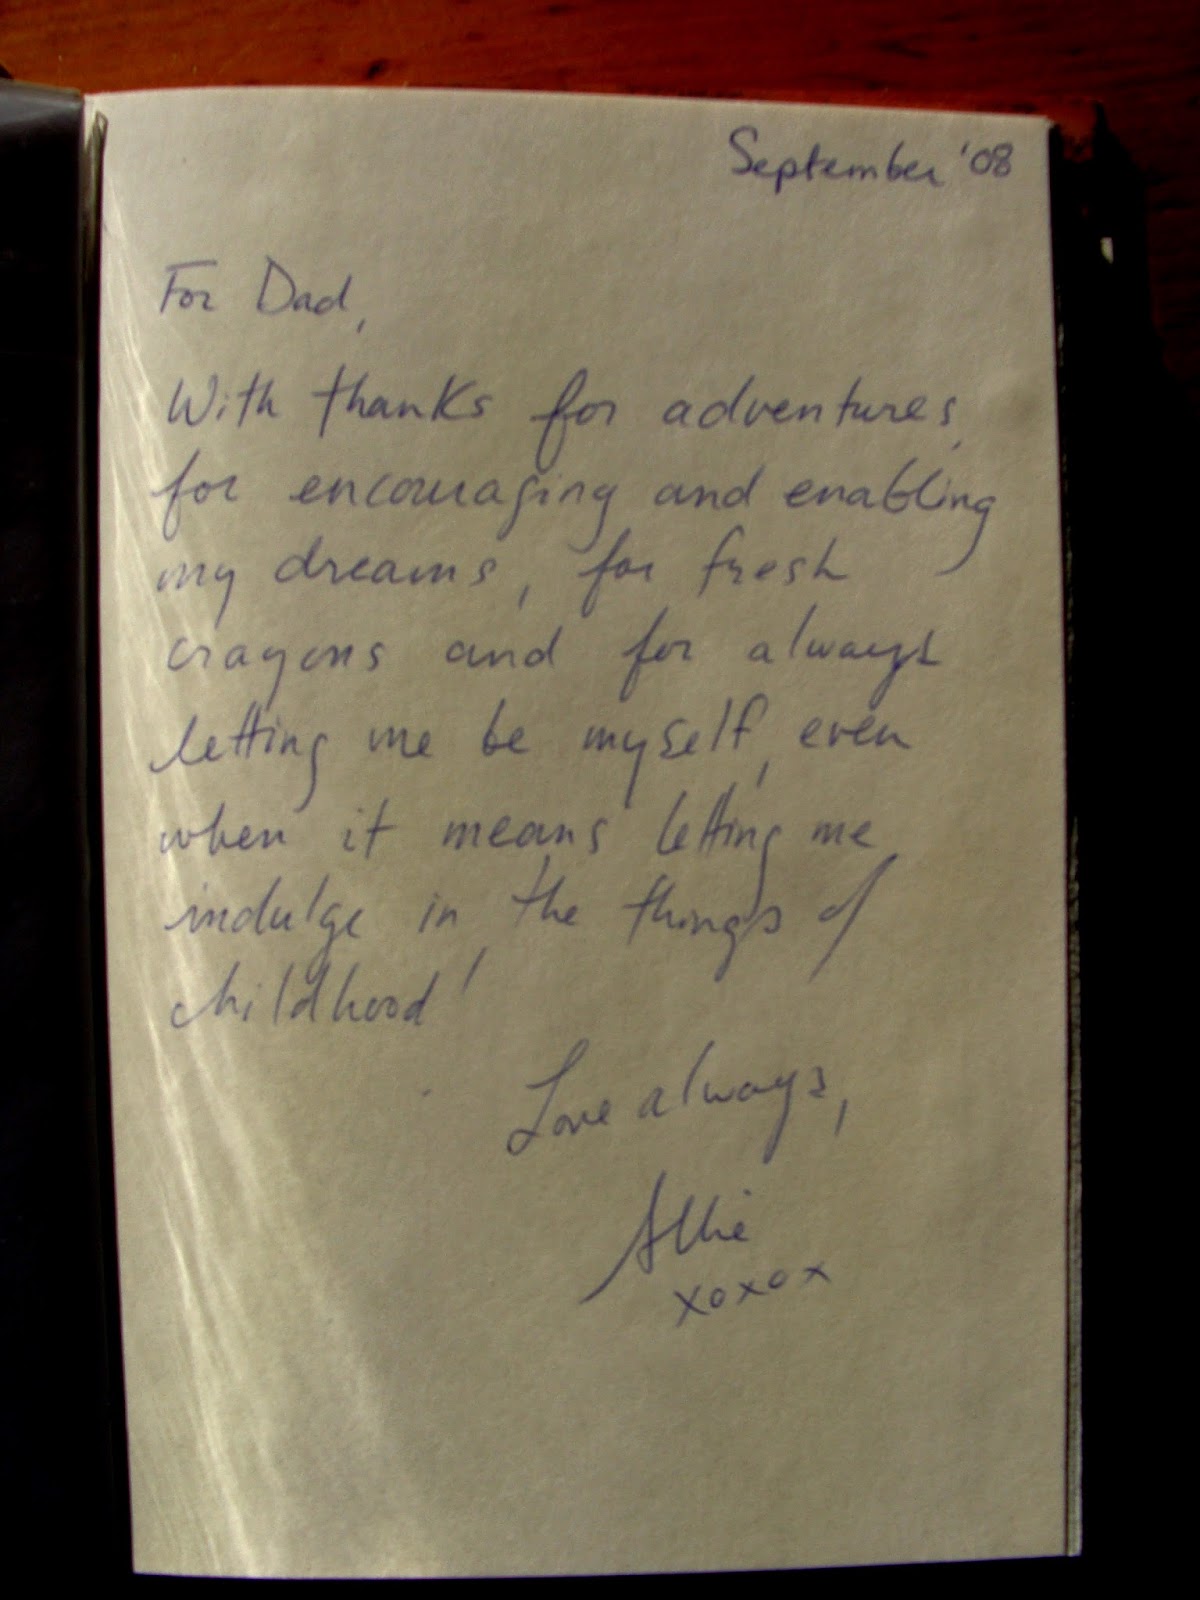 September '08
For Dad,
With thanks for adventures,
for encouraging and enabling
my dreams, for fresh
crayons and for always
letting me be myself, even
when it means letting me
indulge in the things of
childhood!
Love always,
Allie
xoxox